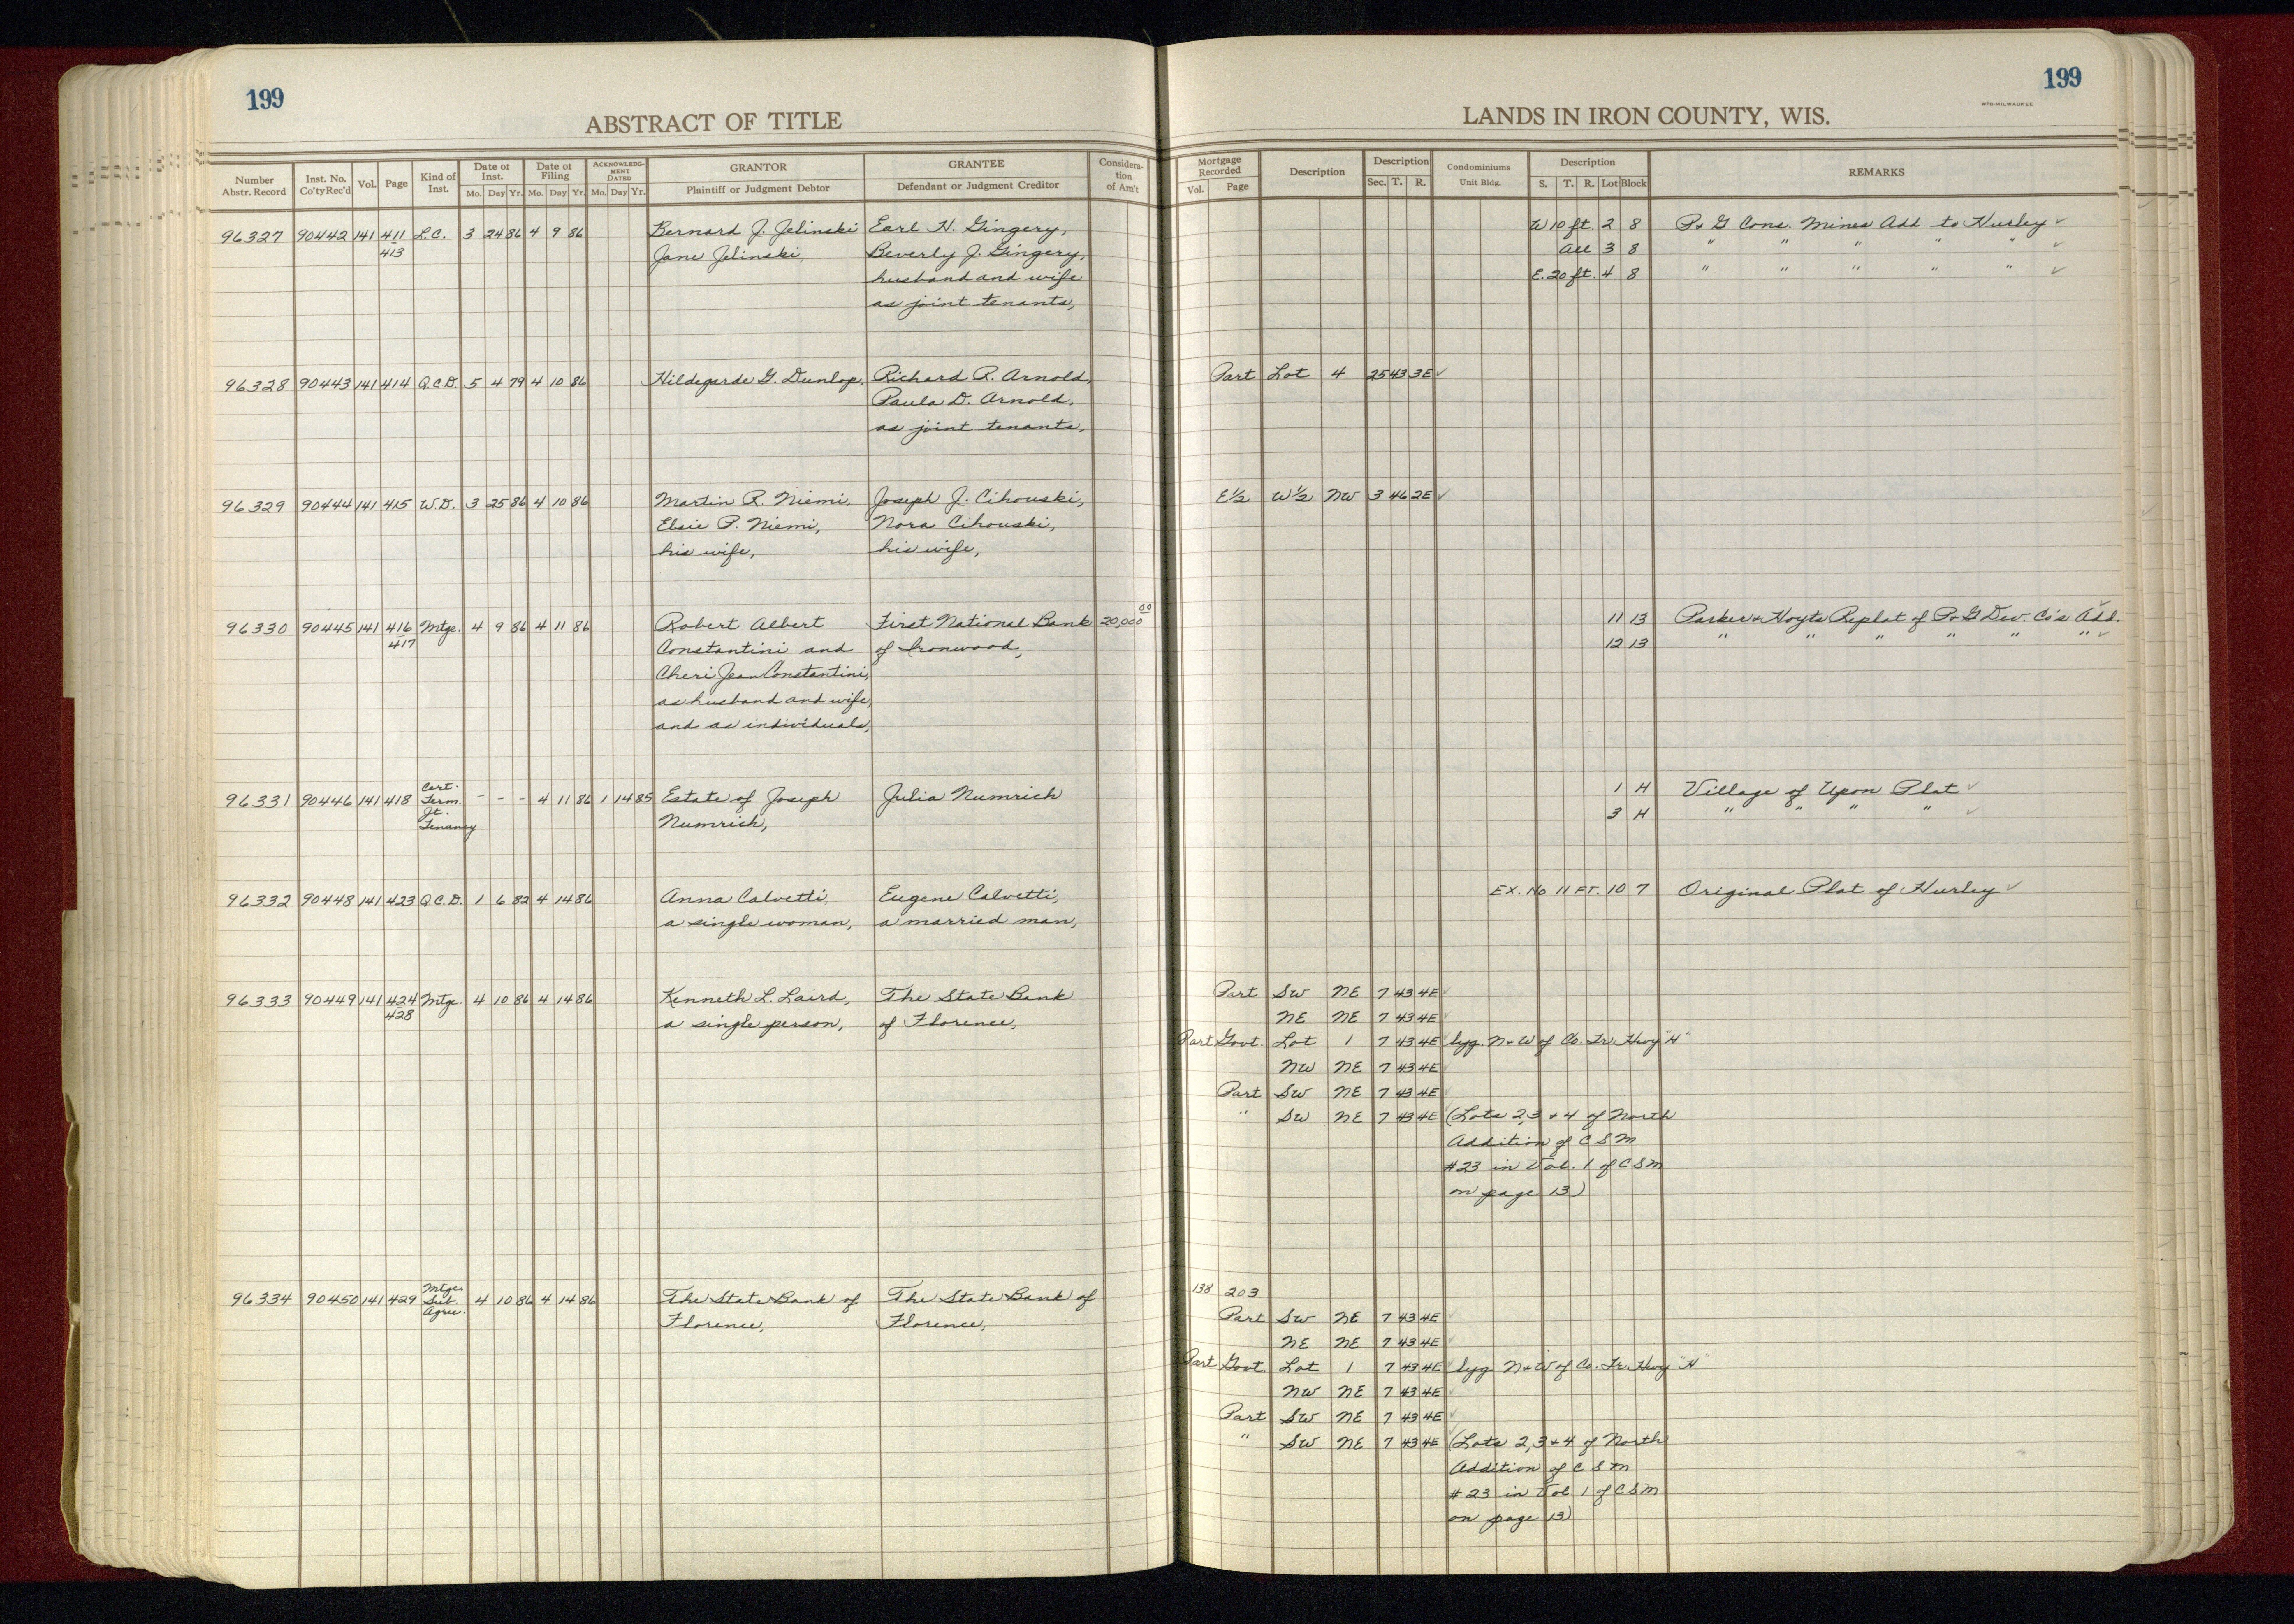 199
199
WPB-MILWAUKEE
ABSTRACT OF TITLE
LANDS IN IRON COUNTY, WIS.
Number Abstr. Record
Inst. No. Co'ty Rec'd
Vol.
Page
Kind of Inst.
Date of Inst. Mo. Day Yr.
Date of Filing Mo. Day Yr.
ACKNOWLEDGMENT DATED Mo. Day Yr.
GRANTOR Plaintiff or Judgment Debtor
GRANTEE Defendant or Judgment Creditor
Consideration of Am't
Mortgage Recorded Vol. Page
Description
Description Sec. T. R.
Condominiums Unit Bldg.
Description S. T. R. Lot Block
REMARKS
96327 90442 141 411 L.C. 3 24 86 4 9 86 Bernard J. Jelinski Earl H. Gingery, W 10 ft. 2 8 P & G Cons. Mines Add to Hurley ✓
413 Jane Jelinski, Beverly J. Gingery, All 3 8 " " " " " ✓
husband and wife E. 20 ft. 4 8 " " " " " ✓
as joint tenants,
96328 90443 141 414 Q.C.D. 5 4 79 4 10 86 Hildegarde G. Dunlop, Richard R. Arnold, Part Lot 4 25 43 3E ✓
Paula D. Arnold,
as joint tenants,
96329 90444 141 415 W.D. 3 25 86 4 10 86 Martin R. Niemi, Joseph J. Cihouski, E½ W½ NW 3 46 2E ✓
Elsie P. Niemi, Nora Cihouski,
his wife, his wife,
96330 90445 141 416 Mtge. 4 9 86 4 11 86 Robert Albert First National Bank 20,000 00 11 13 Parker & Hoyts Replat of P & G Dev. Co's Add. ✓
417 Constantini and of Ironwood, 12 13 " " " " " " ✓
Cheri Jean Constantini,
as husband and wife,
and as individuals,
96331 90446 141 418 Cert. Term. Jt. Tenancy - - - 4 11 86 1 14 85 Estate of Joseph Julia Numrich 1 H Village of Upson Plat ✓
Numrich, 3 H " " " " ✓
96332 90448 141 423 Q.C.D. 1 6 82 4 14 86 Anna Calvetti, Eugene Calvetti, EX. No 11 FT. 10 7 Original Plat of Hurley ✓
a single woman, a married man,
96333 90449 141 424 Mtge. 4 10 86 4 14 86 Kenneth L. Laird, The State Bank Part SW NE 7 43 4E ✓
428 a single person, of Florence, NE NE 7 43 4E ✓
Part Govt. Lot 1 7 43 4E ✓ lyg. N & W of Co. Tr. Hwy "H"
NW NE 7 43 4E ✓
Part SW NE 7 43 4E ✓
" SW NE 7 43 4E (Lots 2, 3 & 4 of North
Addition of C S M
#23 in Vol. 1 of C S M
on page 13)
96334 90450 141 429 Mtge Sub. Agree. 4 10 86 4 14 86 The State Bank of The State Bank of 138 203
Florence, Florence, Part SW NE 7 43 4E ✓
NE NE 7 43 4E ✓
Part Govt. Lot 1 7 43 4E ✓ lyg N & W of Co. Tr. Hwy "H"
NW NE 7 43 4E ✓
Part SW NE 7 43 4E ✓
" SW NE 7 43 4E (Lots 2, 3 & 4 of North
Addition of C S M
#23 in Vol 1 of C S M
on page 13)